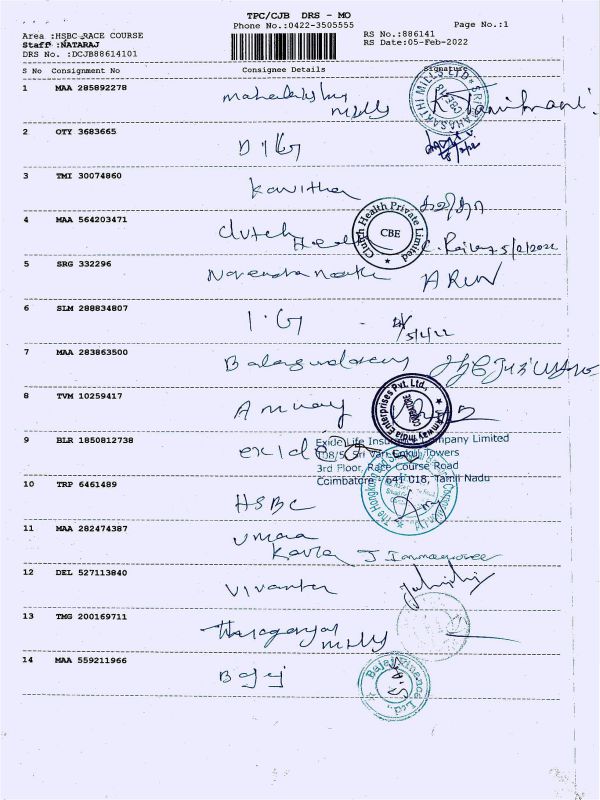 TPC/CJB DRS - MO
Phone No.:0422-3505555
Page No.:1
Area :HSBC RACE COURSE
RS No.:886141
Staff :NATARAJ
RS Date:05-Feb-2022
DRS No. :DCJB88614101
S No Consignment No Consignee Details Signature
1 MAA 285892278 Mahalakshmy
Mills
2 OTY 3683665 DIG
3 TMI 30074860 Kavitha
4 MAA 564203471 Clutch
Health
Clutch Health Private Limited
CBE
5/2/2022
5 SRG 332296 ARUN
6 SLM 288834807 I.G
7 MAA 283863500
8 TVM 10259417 Amway
Amway India Enterprises Pvt. Ltd.
COIMBATORE
9 BLR 1850812738 exide
Exide Life Insurance Company Limited
108/5, Sri Vari Gokul Towers
3rd Floor, Race Course Road
Coimbatore - 641 018, Tamil Nadu
10 TRP 6461489 HSBC
11 MAA 282474387 Umaa
12 DEL 527113840 Vivanta
13 TMG 200169711 Mills
14 MAA 559211966 Bajaj
Bajaj Finance Ltd.